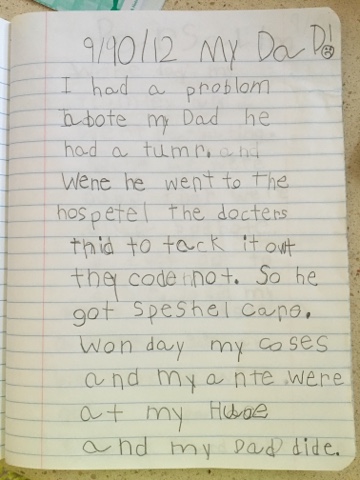 9/90/12 My DaD!
I had a problom
abote my Dad he
had a tumr. and
Wene he went to the
hospetel the docters
thid to tack it out
they code not. So he
got speshel cane.
Won day my coses
and my ante were
at my Huoe
and my Dad dide.